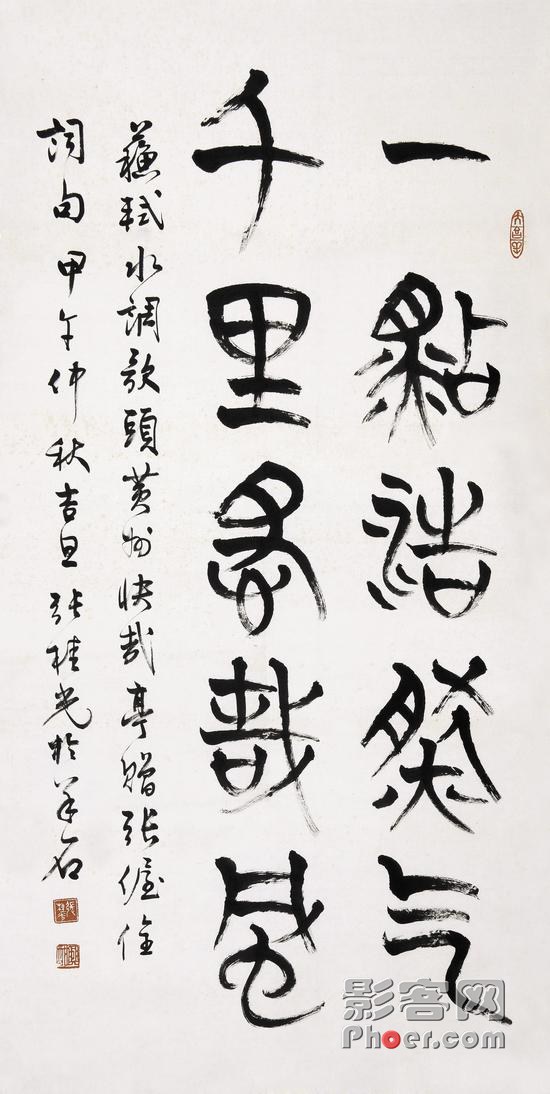 一點浩然气
千里快哉風
蘇軾水調歌頭黃州快哉亭贈張偓佺
詞句甲午仲秋吉旦張桂光於羊石
影客网
Phoer.com